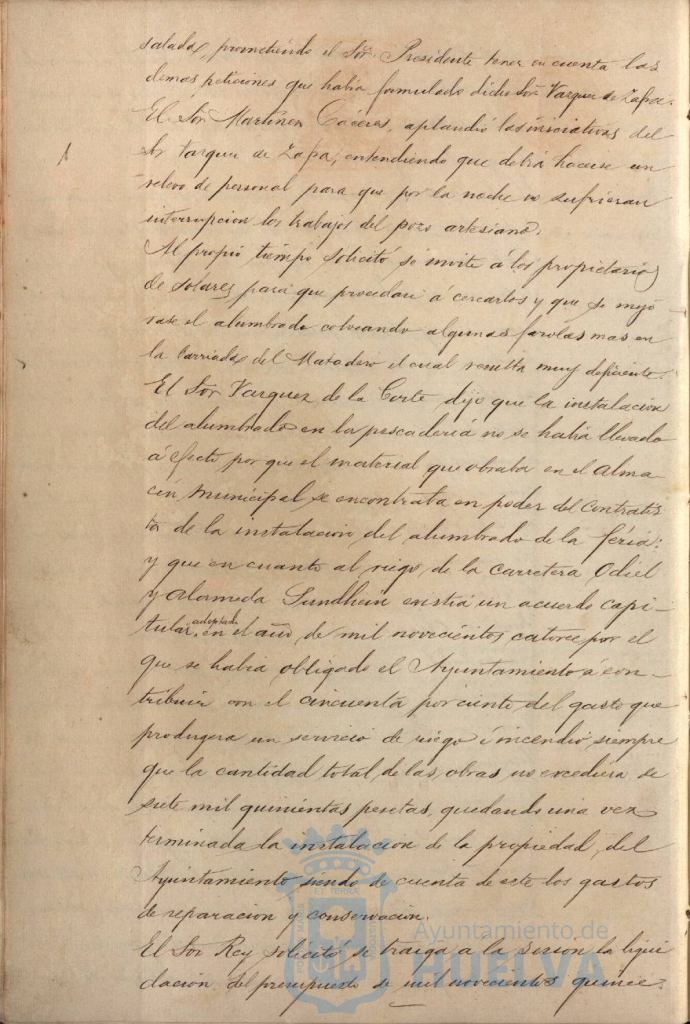 saladas, prometiendo el Sor. Presidente tener en cuenta las
demas peticiones que habia formulado dicho Sor Vazquez de Zafra.
El Sor Martinez Cáceres, aplaudió las iniciativas del
Sr Vazquez de Zafra, entendiendo que debia hacerse un
relevo de personal para que por la noche no sufrieran
interrupcion los trabajos del pozo artesiano.
Al propio tiempo solicitó se invite á los propietarios
de solares para que procedan á cercarlos y que se mejo
rase el alumbrado colocando algunas farolas mas en
la barriada del Matadero el cual resulta muy deficiente.
El Sor Vazquez de la Corte dijo que la instalacion
del alumbrado en la pescaderia no se habia llevado
á efecto por que el material que obraba en el alma-
cen Municipal se encontraba en poder del Contratis
ta de la instalacion del alumbrado de la feria:
y que en cuanto al riego de la carretera Odiel
y Alameda Sundhein existia un acuerdo capi-
tular, adoptado en el año de mil novecientos catorce por el
que se habia obligado el Ayuntamiento á con-
tribuir con el cincuenta por ciento del gasto que
produgera un servicio de riego é incendio siempre
que la cantidad total de las obras no excediera de
siete mil quinientas pesetas, quedando una vez
terminada la instalacion de la propiedad del
Ayuntamiento siendo de cuenta de este los gastos
de reparacion y conservacion.
El Sor Rey solicitó se traiga a la sesion la liqui
dacion del presupuesto de mil novecientos quince
Ayuntamiento de
HUELVA